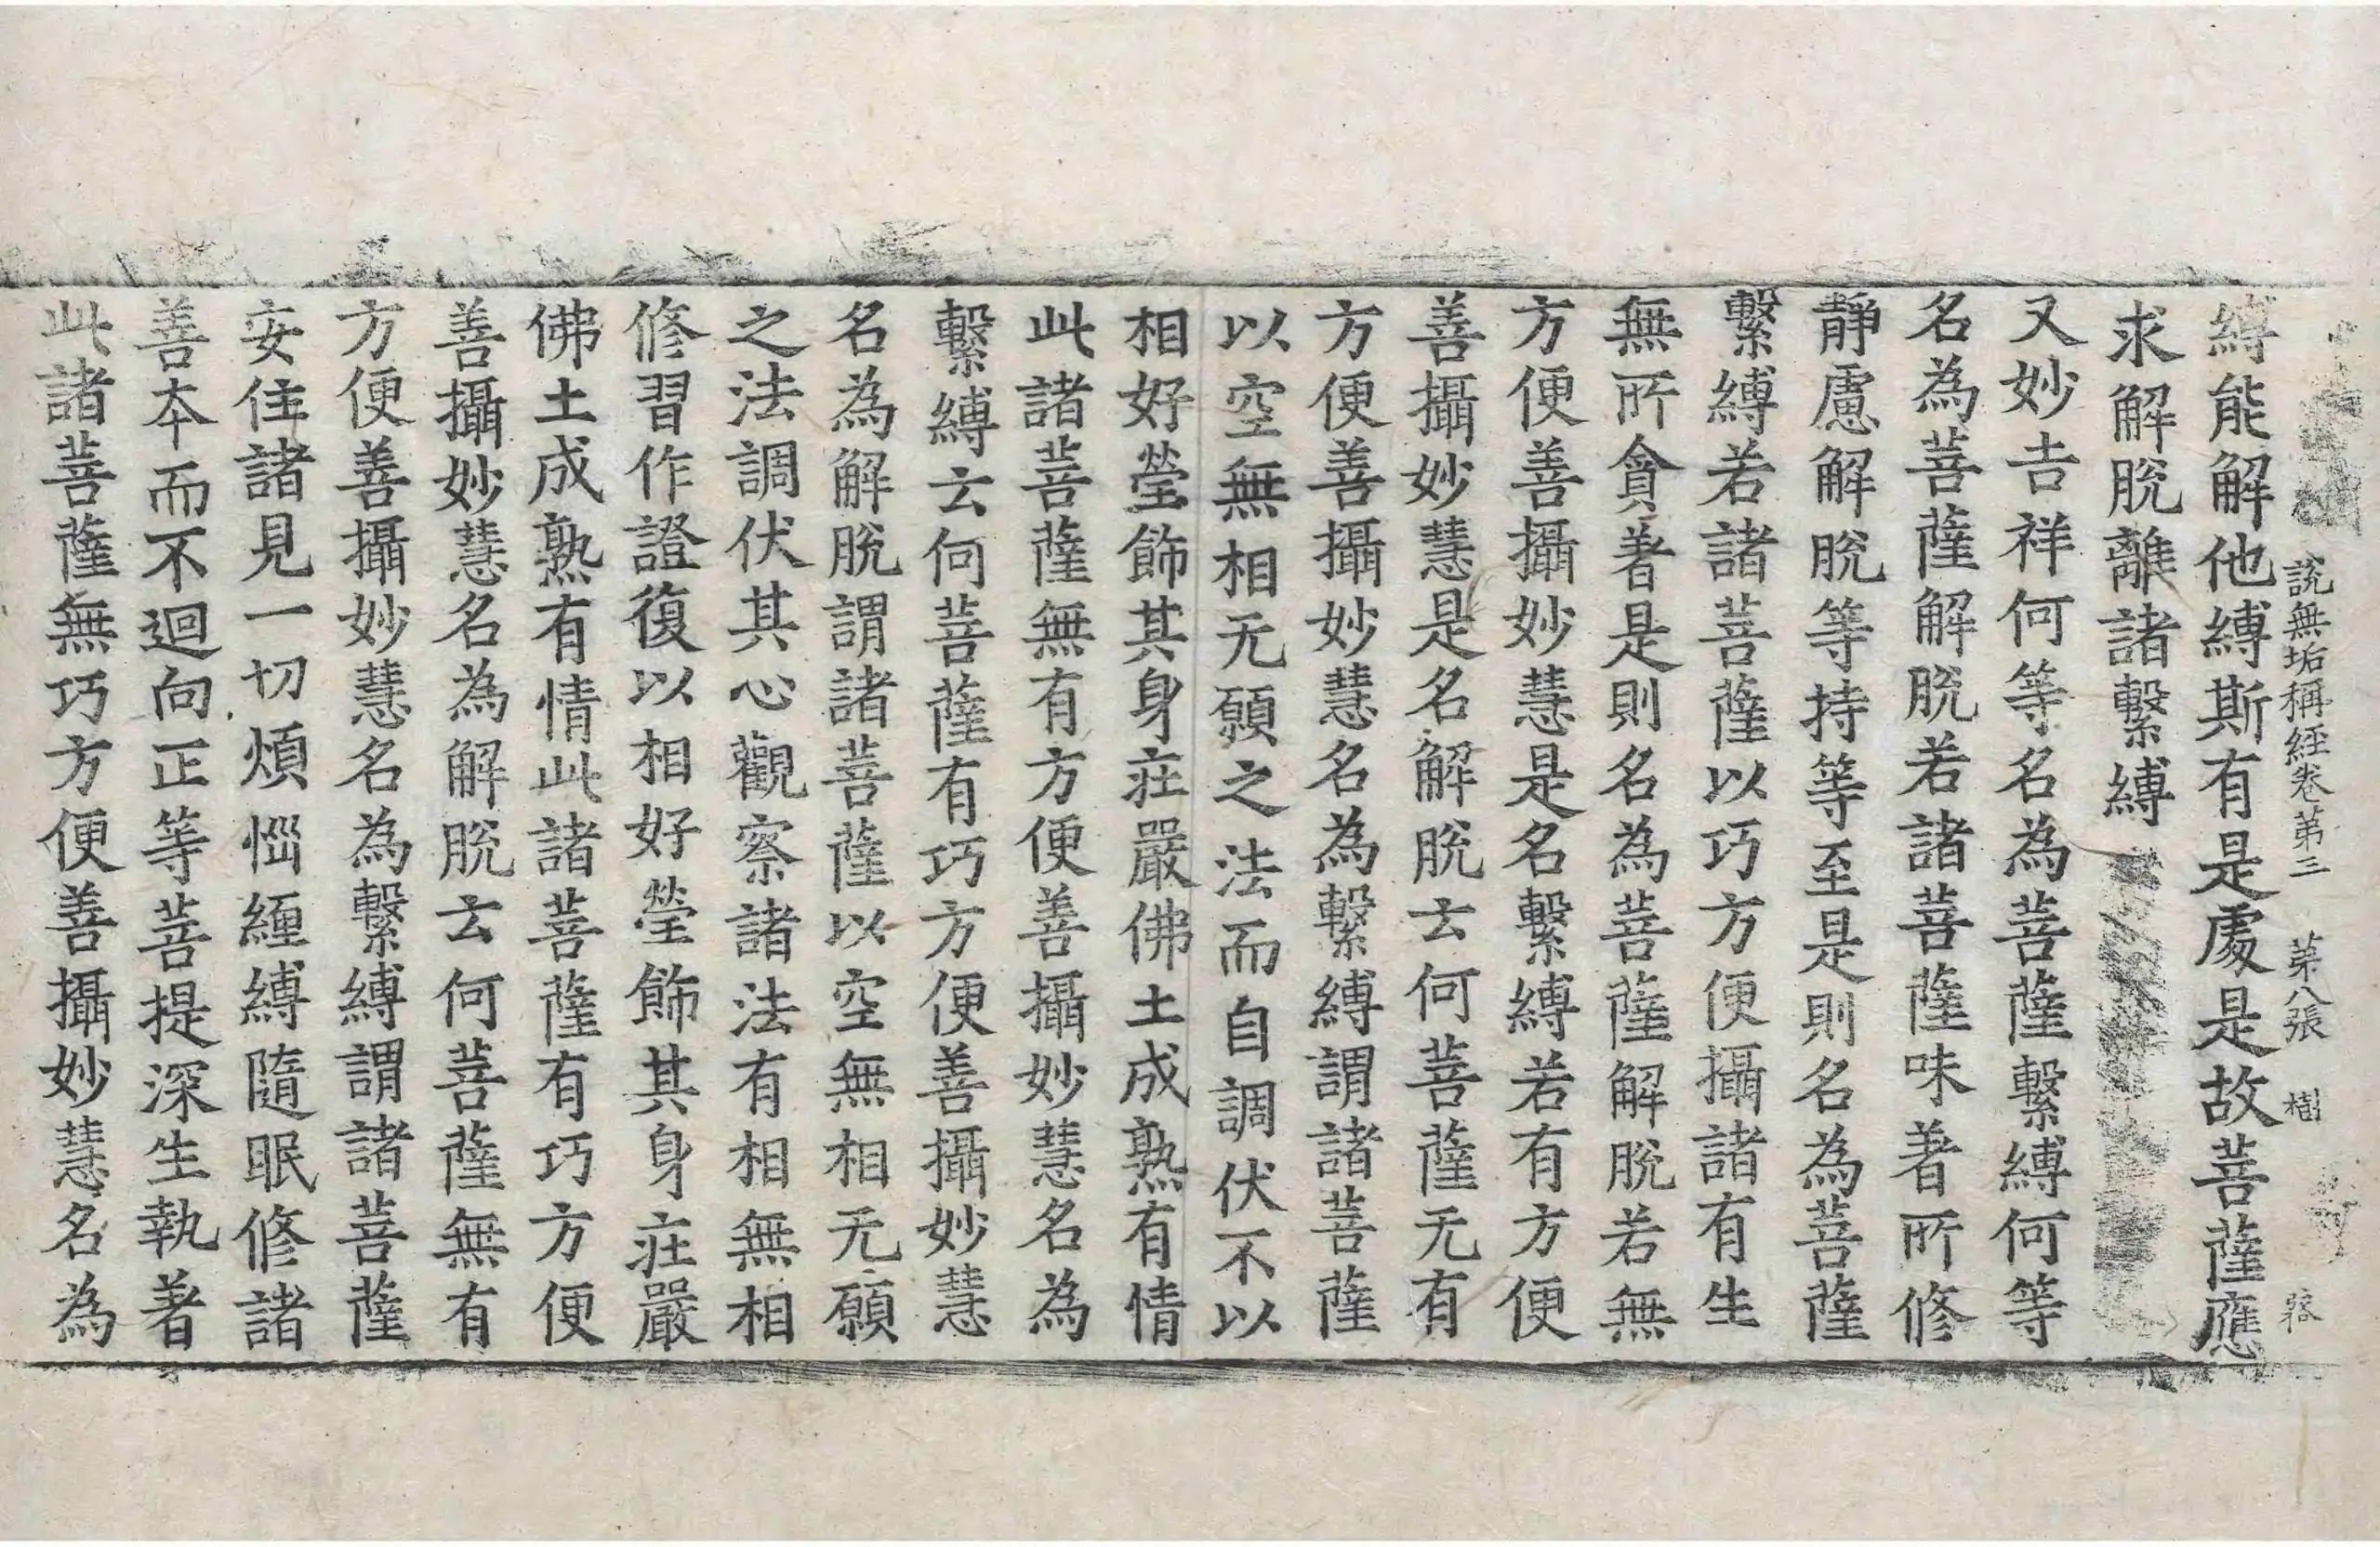 說無垢稱經卷第三 第八張 樹
縛能解他縛斯有是處是故菩薩應
求解脫離諸繫縛
又妙吉祥何等名為菩薩繫縛何等
名為菩薩解脫若諸菩薩味著所修
靜慮解脫等持等至是則名為菩薩
繫縛若諸菩薩以巧方便攝諸有生
無所貪著是則名為菩薩解脫若無
方便善攝妙慧是名繫縛若有方便
善攝妙慧是名解脫云何菩薩无有
方便善攝妙慧名為繫縛謂諸菩薩
以空無相无願之法而自調伏不以
相好瑩飾其身莊嚴佛土成熟有情
此諸菩薩無有方便善攝妙慧名為
繫縛云何菩薩有巧方便善攝妙慧
名為解脫謂諸菩薩以空無相无願
之法調伏其心觀察諸法有相無相
修習作證復以相好瑩飾其身莊嚴
佛土成熟有情此諸菩薩有巧方便
善攝妙慧名為解脫云何菩薩無有
方便善攝妙慧名為繫縛謂諸菩薩
安住諸見一切煩惱纏縛隨眠修諸
善本而不迴向正等菩提深生執著
此諸菩薩無巧方便善攝妙慧名為